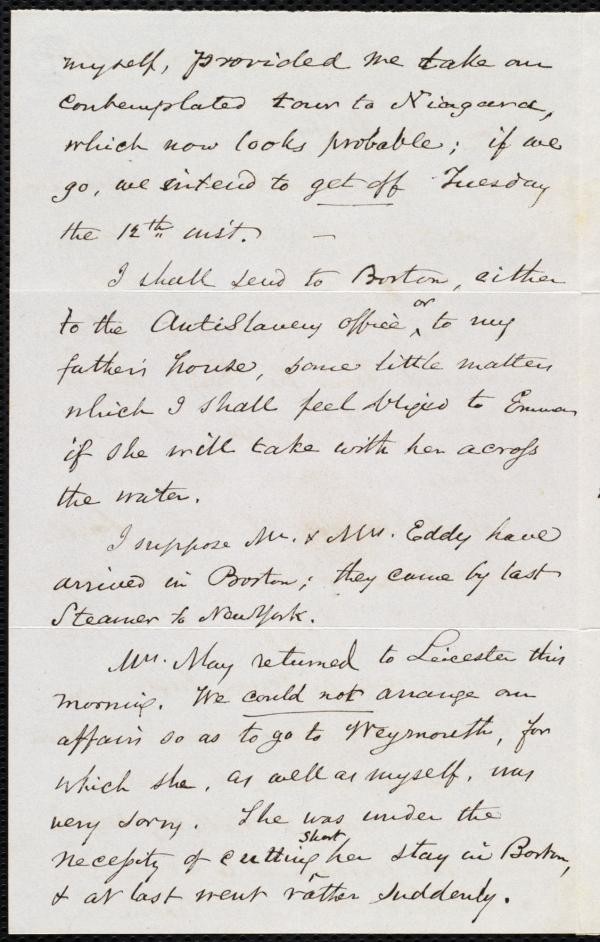 myself, provided we take our
contemplated tour to Niagara,
which now looks probable; if we
go, we intend to get off Tuesday
the 12th inst. —
I shall send to Boston, either
to the AntiSlavery office, or to my
father's house, some little matters
which I shall feel obliged to Emma
if she will take with her across
the water.
I suppose Mr. & Mrs. Eddy have
arrived in Boston; they came by last
Steamer to New York.
Mrs. May returned to Leicester this
morning. We could not arrange our
affairs so as to go to Weymouth, for
which she, as well as myself, was
very sorry. She was under the
necessity of cutting short her stay in Boston,
& at last went rather suddenly.